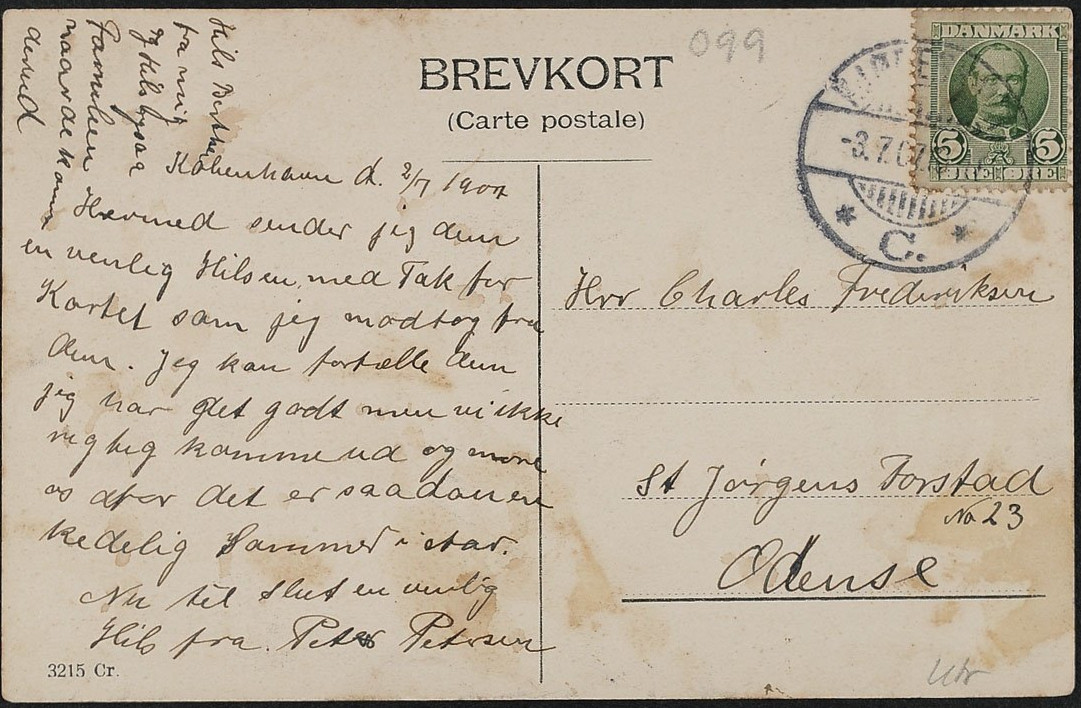 099
BREVKORT
(Carte postale)
DANMARK
5 5
ØRE ØRE
-3.7.07.
* C. *
Hils
fra mig
og Hils ogsaa
Familien
naar de komme
derned
København d. 2/7 1907
Hermed sender jeg dem
en venlig Hilsen med Tak for
Kortet som jeg modtog fra
dem. Jeg kan fortælle dem
jeg har det godt men vi ikke
rigtig komme ud og more
os det er saadan en
kedelig Sommer i Aar.
Nu til Slut en venlig
Hils fra Peter Petersen
3215 Cr.
Hrr Charles Frederiksen
St Jørgens Forstad
No 23
Odense